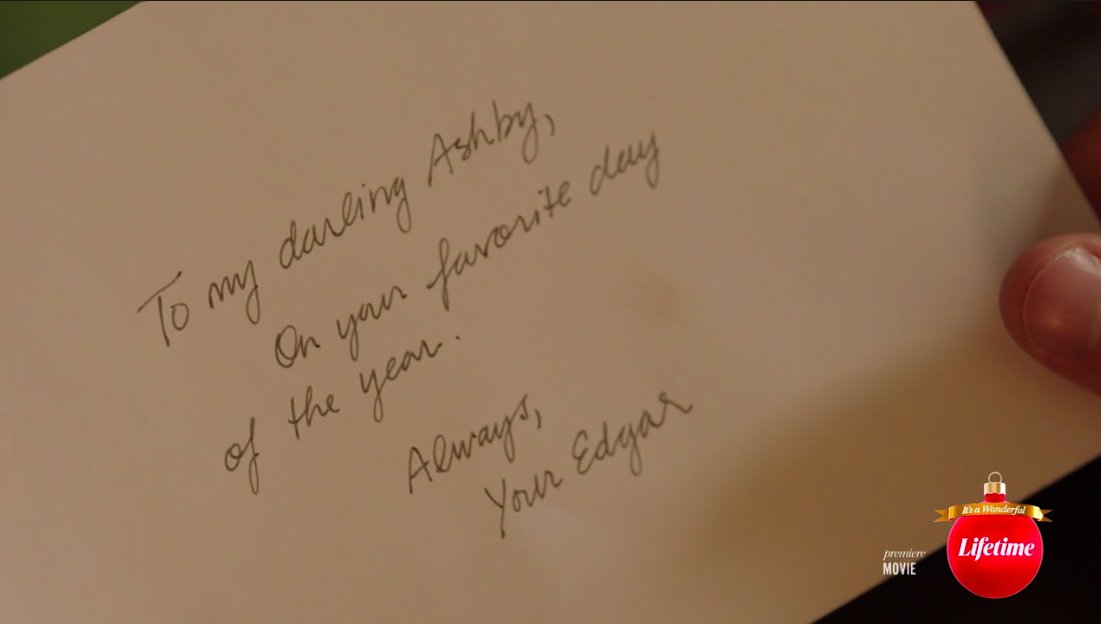 To my darling Ashby,
On your favorite day
of the year.
Always,
Your Edgar
It's a Wonderful
Lifetime
premiere
MOVIE